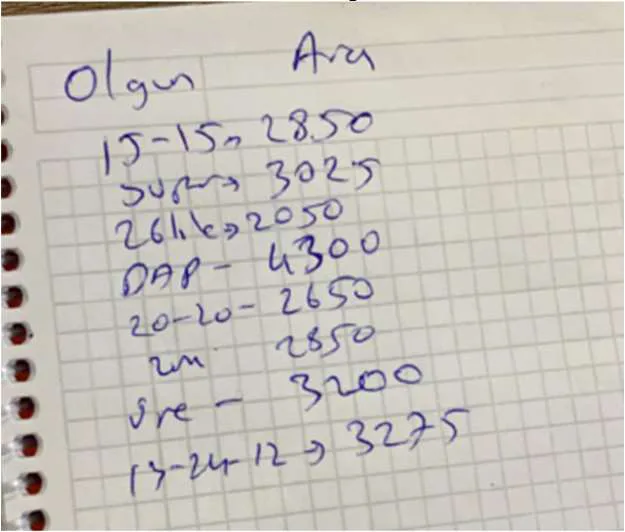 Olgun Ara
15-15 → 2850
Süper → 3025
26lık → 2050
DAP - 4300
20-20 - 2650
2850
üre - 3200
13-24-12 → 3275